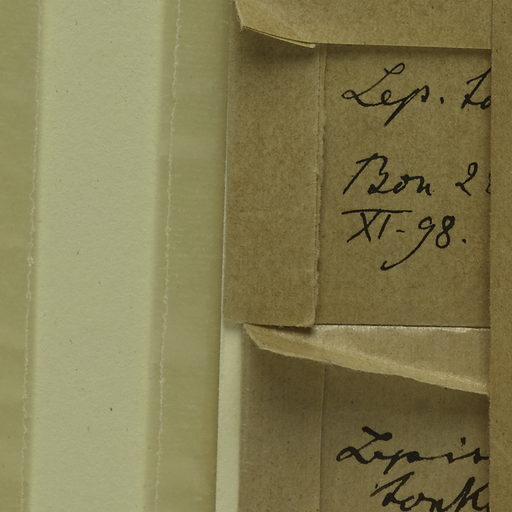 Lep. to
Bon 2
XI-98.
Lepis
tonk